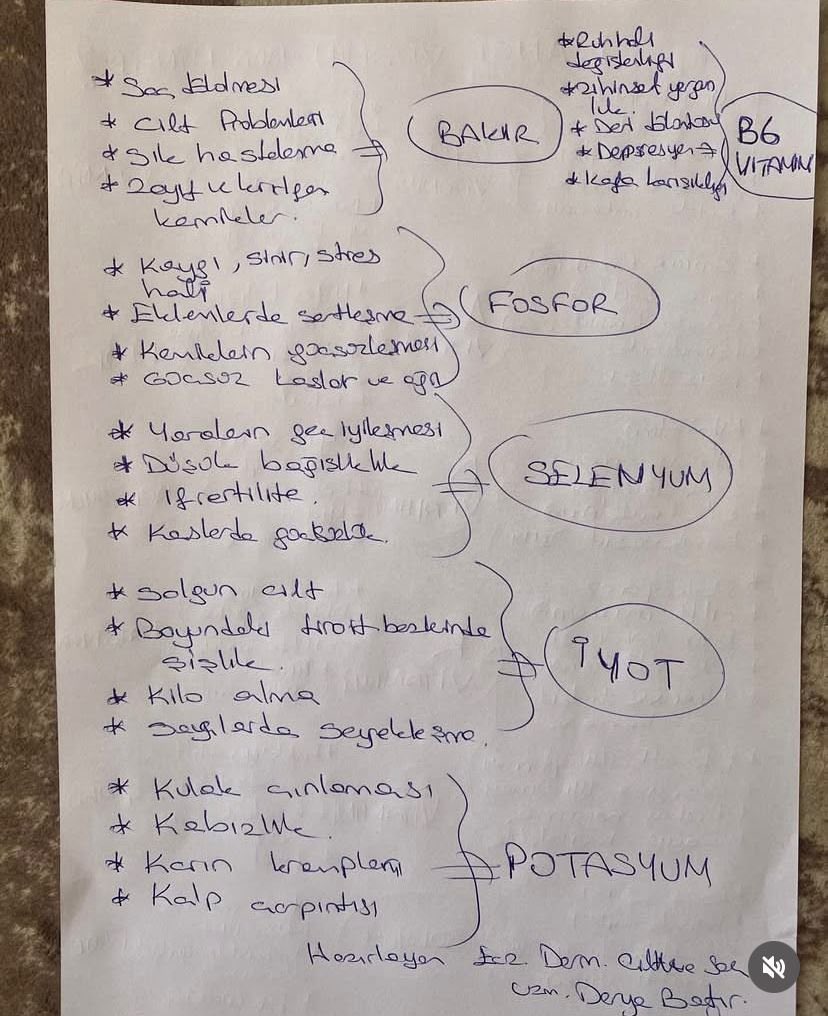 * Saç Dökülmesi
* Cilt Problemleri
* Sık hastalanma
* Zayıf ve kırılgan
kemikler.
BAKIR
* Ruh hali
değişikliği
* Zihinsel yorgun
luk
* Deri döküntüsü
* Depresyon
* Kafa karışıklığı
B6
VITAMIN
* Kaygı, sinir, stres
hali
* Eklemlerde sertleşme
* Kemiklerin güçsüzleşmesi
* Güçsüz kaslar ve ağrı
FOSFOR
* Yaraların geç iyileşmesi
* Düşük bağışıklık
* Ifrertilite.
* Kaslarda güçsüzlük.
SELENYUM
* Solgun cilt
* Boyundaki tiroit bezlerinde
şişlik.
* Kilo alma
* Saçlarda seyrekleşme.
İYOT
* Kulak çınlaması
* Kabızlık.
* Karın krampları
* Kalp çarpıntısı
POTASYUM
Hazırlayan Ecz. Derm. Cilt ve Saç
Uzm. Derya Batır.